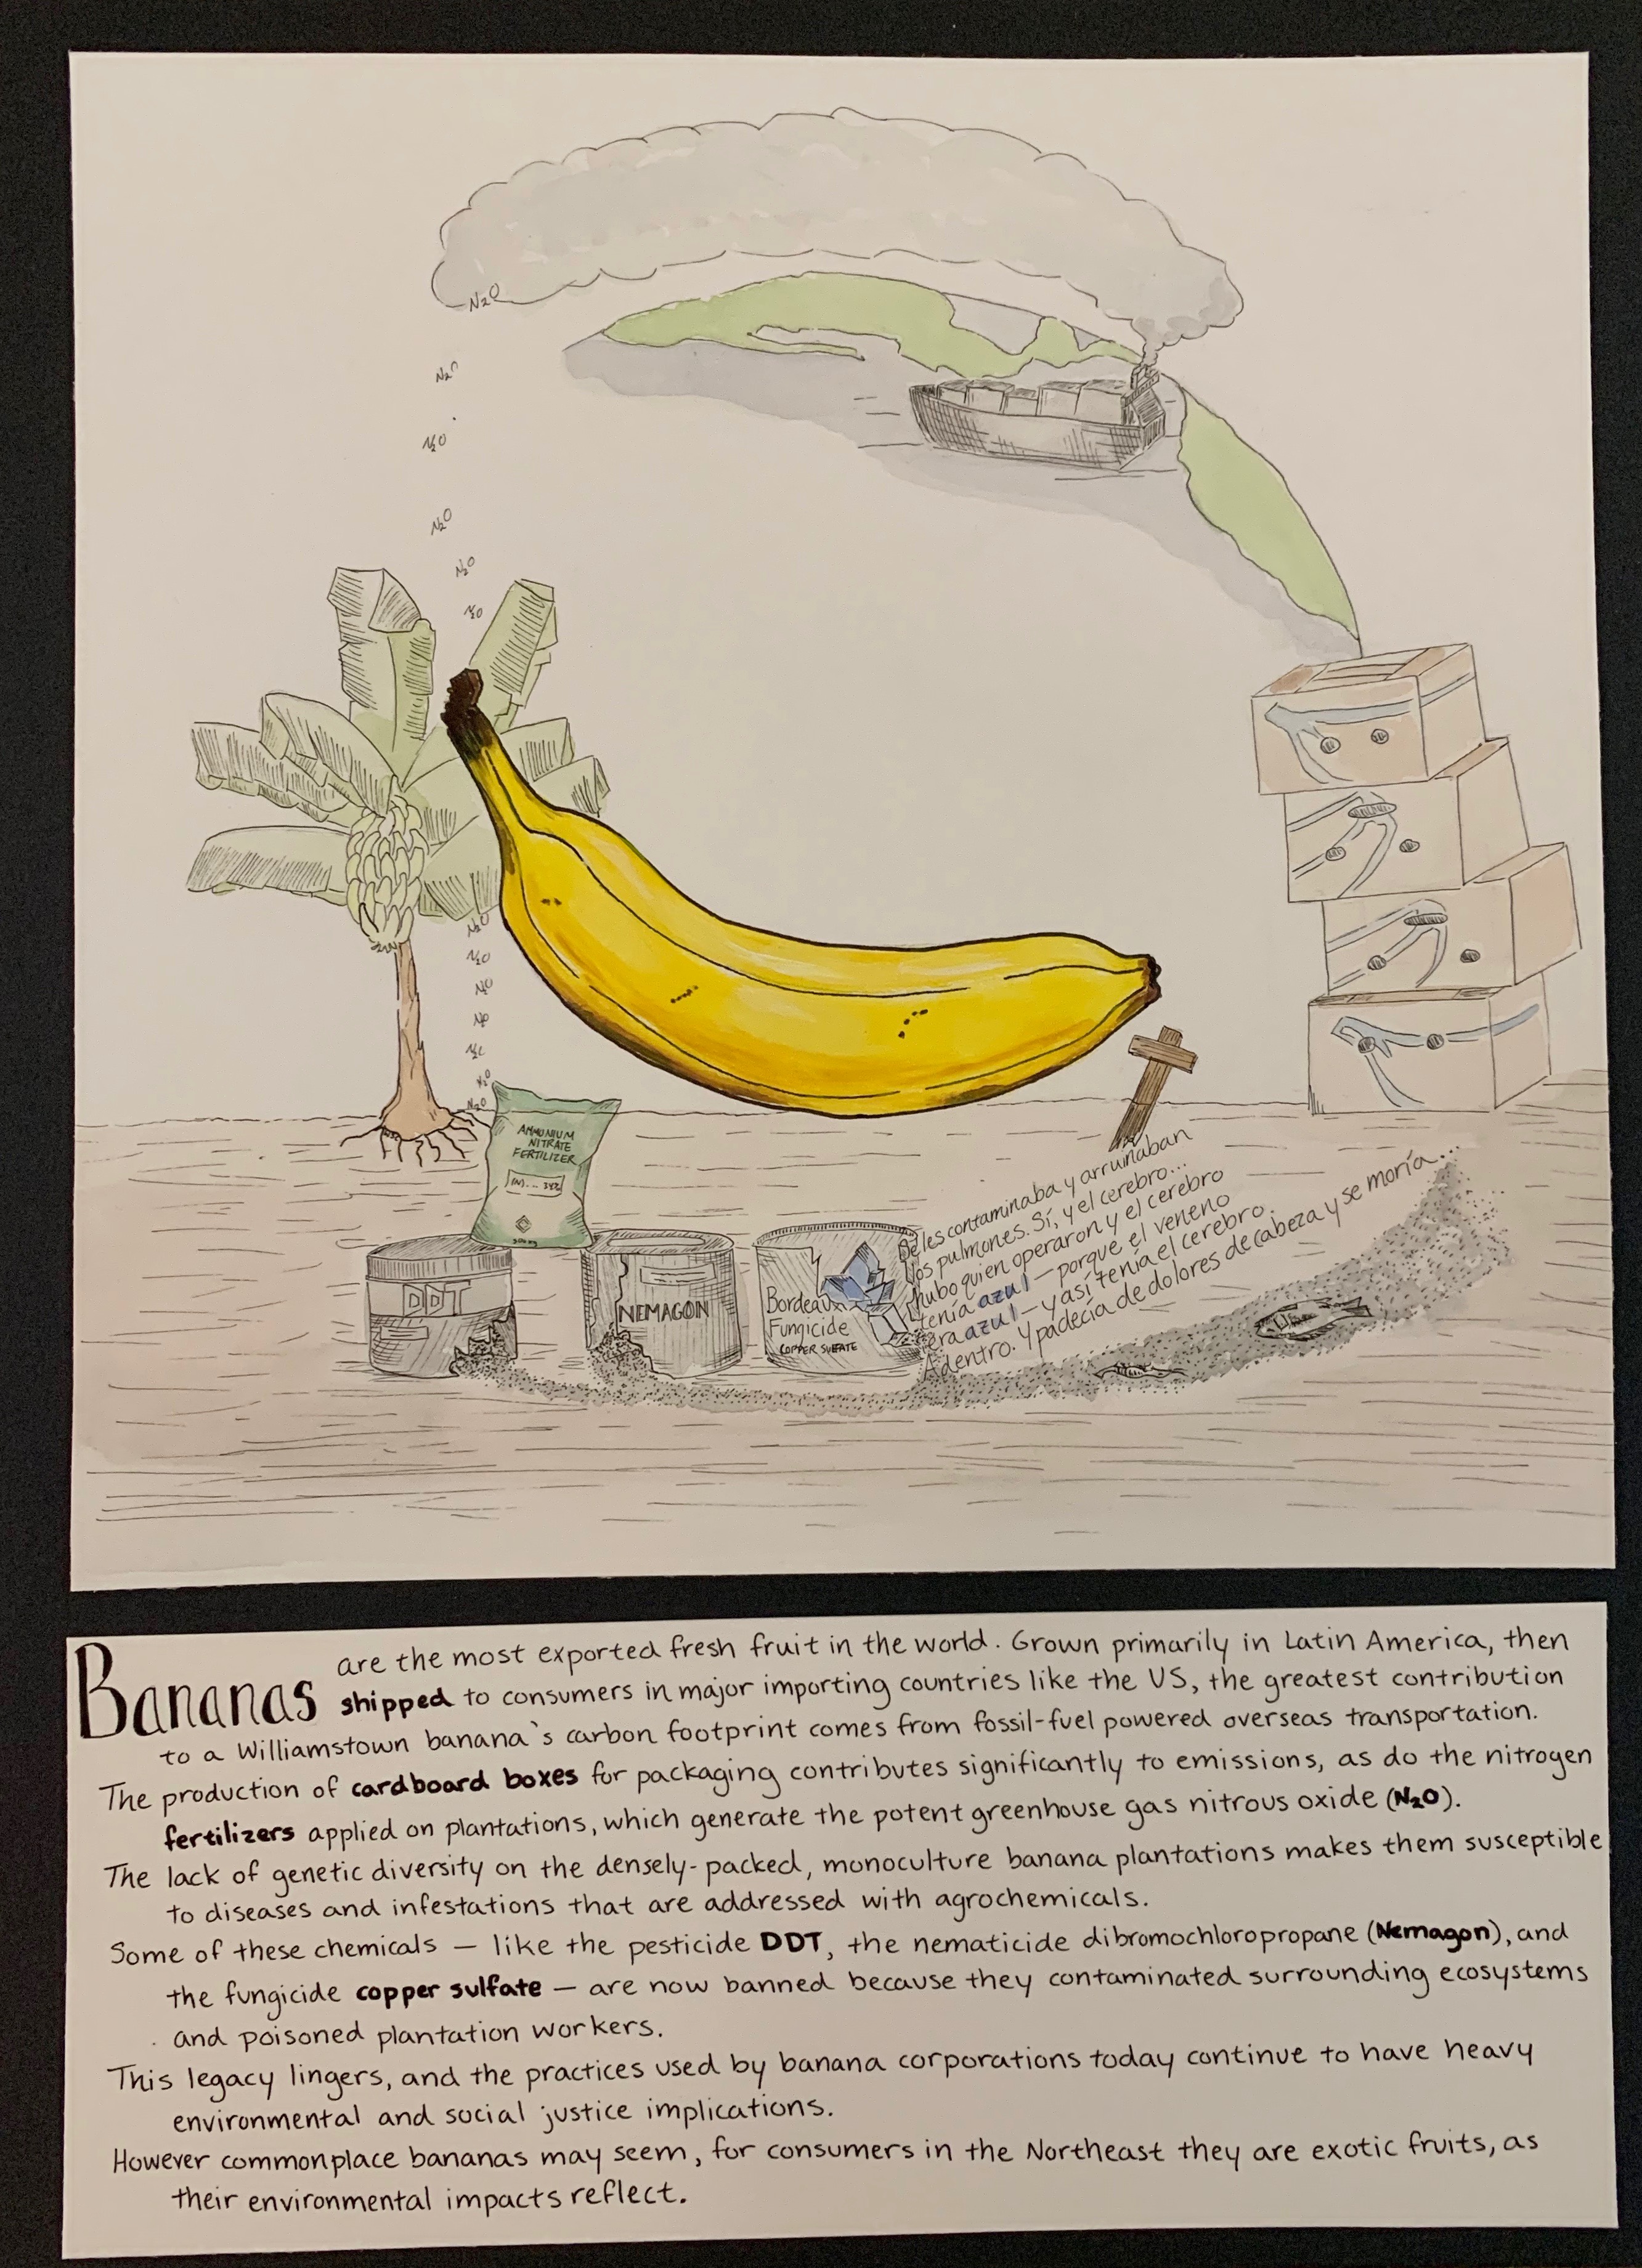 N₂O
N₂O
N₂O
N₂O
N₂O
N₂O
N₂O
N₂O
N₂O
N₂O
N₂O
N₂O
AMMONIUM
NITRATE
FERTILIZER
DDT
NEMAGON
Bordeaux
Fungicide
COPPER SULFATE
les contaminaba y arruinaban
los pulmones. Sí, y el cerebro...
Hubo quien operaron y el cerebro
tenía azul — porque el veneno
era azul — y así tenía el cerebro.
Adentro. Y padecía de dolores de cabeza y se moría...
Bananas are the most exported fresh fruit in the world. Grown primarily in Latin America, then
shipped to consumers in major importing countries like the US, the greatest contribution
to a Williamstown banana's carbon footprint comes from fossil-fuel powered overseas transportation.
The production of cardboard boxes for packaging contributes significantly to emissions, as do the nitrogen
fertilizers applied on plantations, which generate the potent greenhouse gas nitrous oxide (N₂O).
The lack of genetic diversity on the densely-packed, monoculture banana plantations makes them susceptible
to diseases and infestations that are addressed with agrochemicals.
Some of these chemicals — like the pesticide DDT, the nematicide dibromochloropropane (Nemagon), and
the fungicide copper sulfate — are now banned because they contaminated surrounding ecosystems
and poisoned plantation workers.
This legacy lingers, and the practices used by banana corporations today continue to have heavy
environmental and social justice implications.
However commonplace bananas may seem, for consumers in the Northeast they are exotic fruits, as
their environmental impacts reflect.